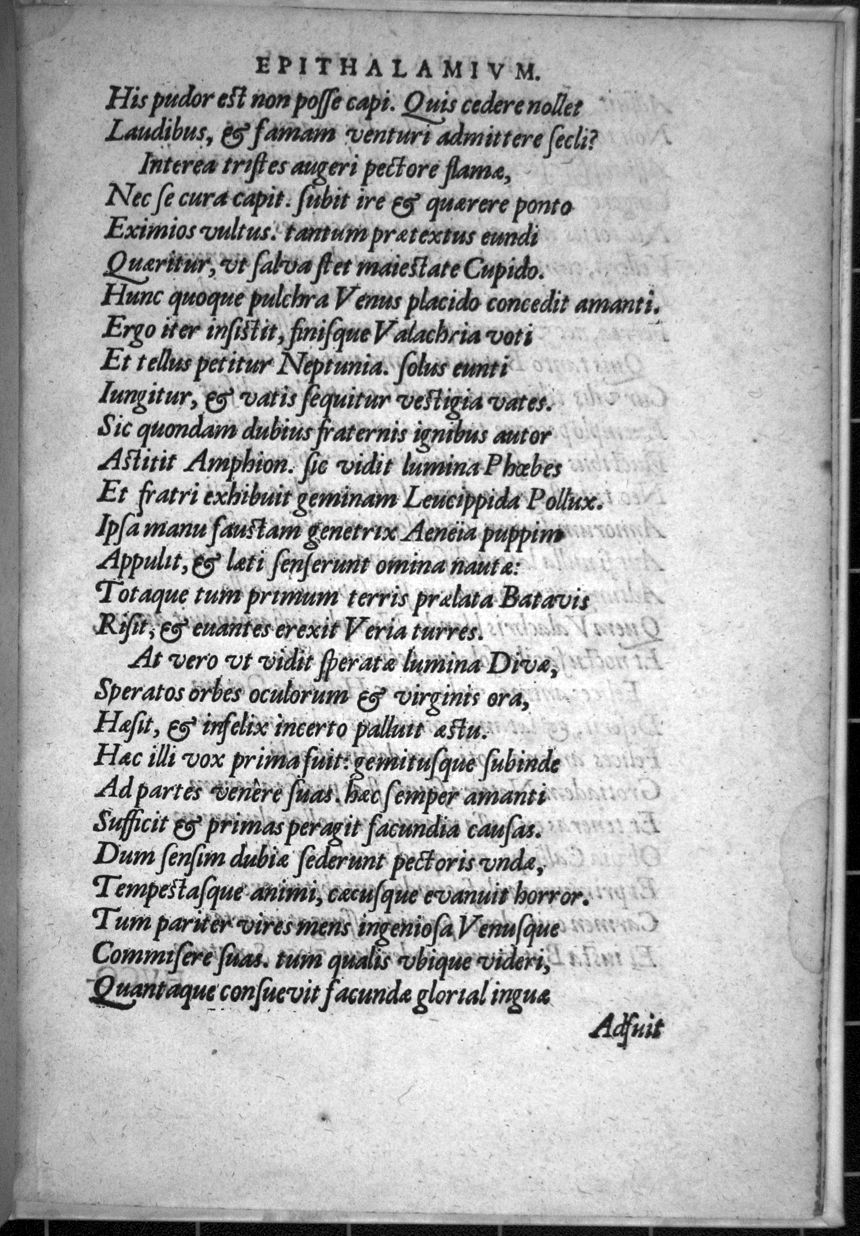 EPITHALAMIVM.
His pudor est non posse capi. Quis cedere nollet
Laudibus, & famam venturi admittere secli?
Interea tristes augeri pectore flamæ,
Nec se cura capit. subit ire & quærere ponto
Eximios vultus. tantum prætextus eundi
Quæritur, vt salva stet maiestate Cupido.
Hunc quoque pulchra Venus placido concedit amanti.
Ergo iter insistit, finisque Valachria voti
Et tellus petitur Neptunia. solus eunti
Iungitur, & vatis sequitur vestigia vates.
Sic quondam dubius fraternis ignibus autor
Astitit Amphion. sic vidit lumina Phœbes
Et fratri exhibuit geminam Leucippida Pollux.
Ipsa manu faustam genetrix Aeneïa puppim
Appulit, & læti senserunt omina nautæ:
Totaque tum primum terris prælata Batavis
Risit, & euantes erexit Veria turres.
At vero vt vidit speratæ lumina Divæ,
Speratos orbes oculorum & virginis ora,
Hæsit, & infelix incerto palluit æstu.
Hæc illi vox prima fuit: gemitusque subinde
Ad partes venêre suas. hæc semper amanti
Sufficit & primas peragit facundia causas.
Dum sensim dubiæ sederunt pectoris vndæ,
Tempestasque animi, cæcusque evanuit horror.
Tum pariter vires mens ingeniosa Venusque
Commisere suas. tum qualis vbique videri,
Quantaque consuevit facundæ gloria linguæ
Adfuit